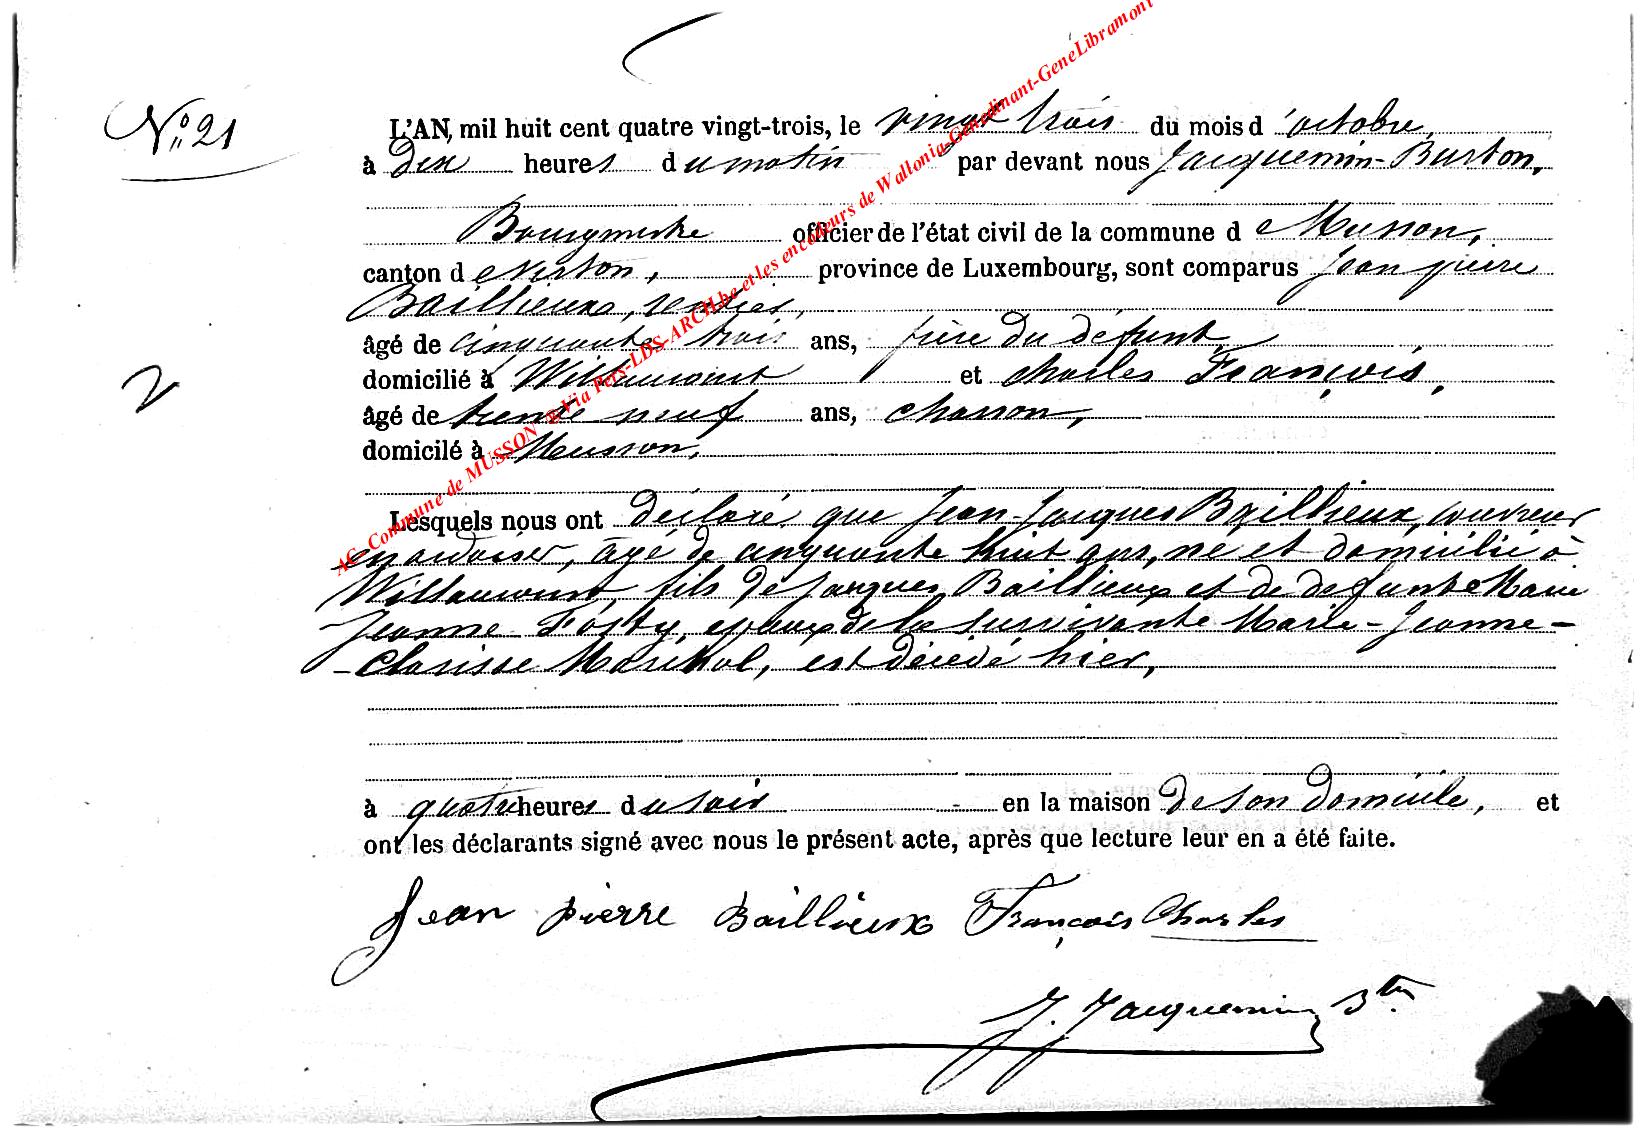 N° 21
L'AN, mil huit cent quatre vingt-trois, le vingt trois du mois d'octobre,
à dix heures du matin par devant nous Jacquemin-Burton,
Bourgmestre officier de l'état civil de la commune de Musson,
canton de Virton, province de Luxembourg, sont comparus Jean pierre
Baillieux, rentier,
âgé de cinquante trois ans, frère du défunt,
domicilié à Willancourt et Charles François,
âgé de trente neuf ans, charron,
domicilé à Musson,
Lesquels nous ont déclaré que Jean-Jacques Baillieux, couvreur
en ardoises, âgé de cinquante huit ans, né et domicilié à
Willancourt, fils de Jacques Baillieux et de defunte Marie
Jeanne Fosty, epoux de la survivante Marie-Jeanne-
-Clarisse Maréchal, est décédé hier,
à quatre heures du soir en la maison de son domicile, et
ont les déclarants signé avec nous le présent acte, après que lecture leur en a été faite.
Jean pierre Baillieux François Charles
J. Jacquemin Btn
AC Commune de MUSSON Via Pers-LDS-ARCH.be et les encodeurs de Wallonia-Genedinant-GeneLibramont